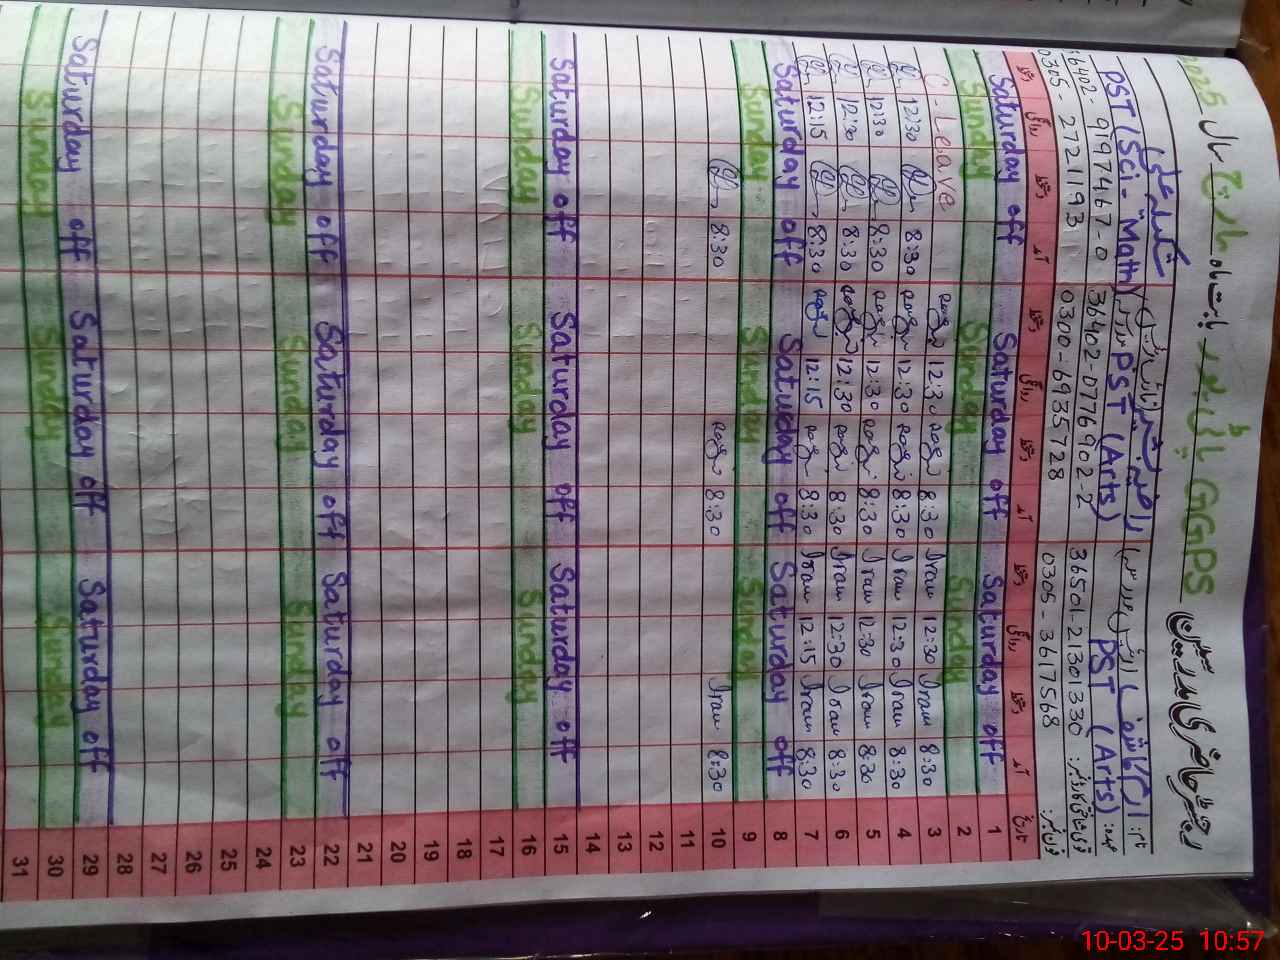 رجسٹر حاضری مدرسین GGPS پائی پور بابت ماہ مارچ سال 2025
نام: ارم کاشف
عہدہ: PST (Arts) PST (Arts) PST (Sci - Math)
36501-2130133-0 36402-0776902-2 36402-9197467-0
فون نمبر: 0305-3617568 0300-6935728 0305-2721193
تاریخ آمد دستخط روانگی دستخط آمد دستخط روانگی دستخط آمد دستخط روانگی دستخط
1 Saturday off Saturday off Saturday off
2 Sunday Sunday Sunday
3 8:30 Iram 12:30 Iram 8:30 12:30 C-Leave
4 8:30 Iram 12:30 Iram 8:30 12:30 8:30 12:30
5 8:30 Iram 12:30 Iram 8:30 12:30 8:30 12:30
6 8:30 Iram 12:30 Iram 8:30 12:30 8:30 12:30
7 8:30 Iram 12:15 Iram 8:30 12:15 8:30 12:15
8 Saturday off Saturday off Saturday off
9 Sunday Sunday Sunday
10 8:30 Iram 8:30 8:30
11
12
13
14
15 Saturday off Saturday off Saturday off
16 Sunday Sunday Sunday
17
18
19
20
21
22 Saturday off Saturday off Saturday off
23 Sunday Sunday Sunday
24
25
26
27
28
29 Saturday off Saturday off Saturday off
30 Sunday Sunday Sunday
31
10-03-25 10:57